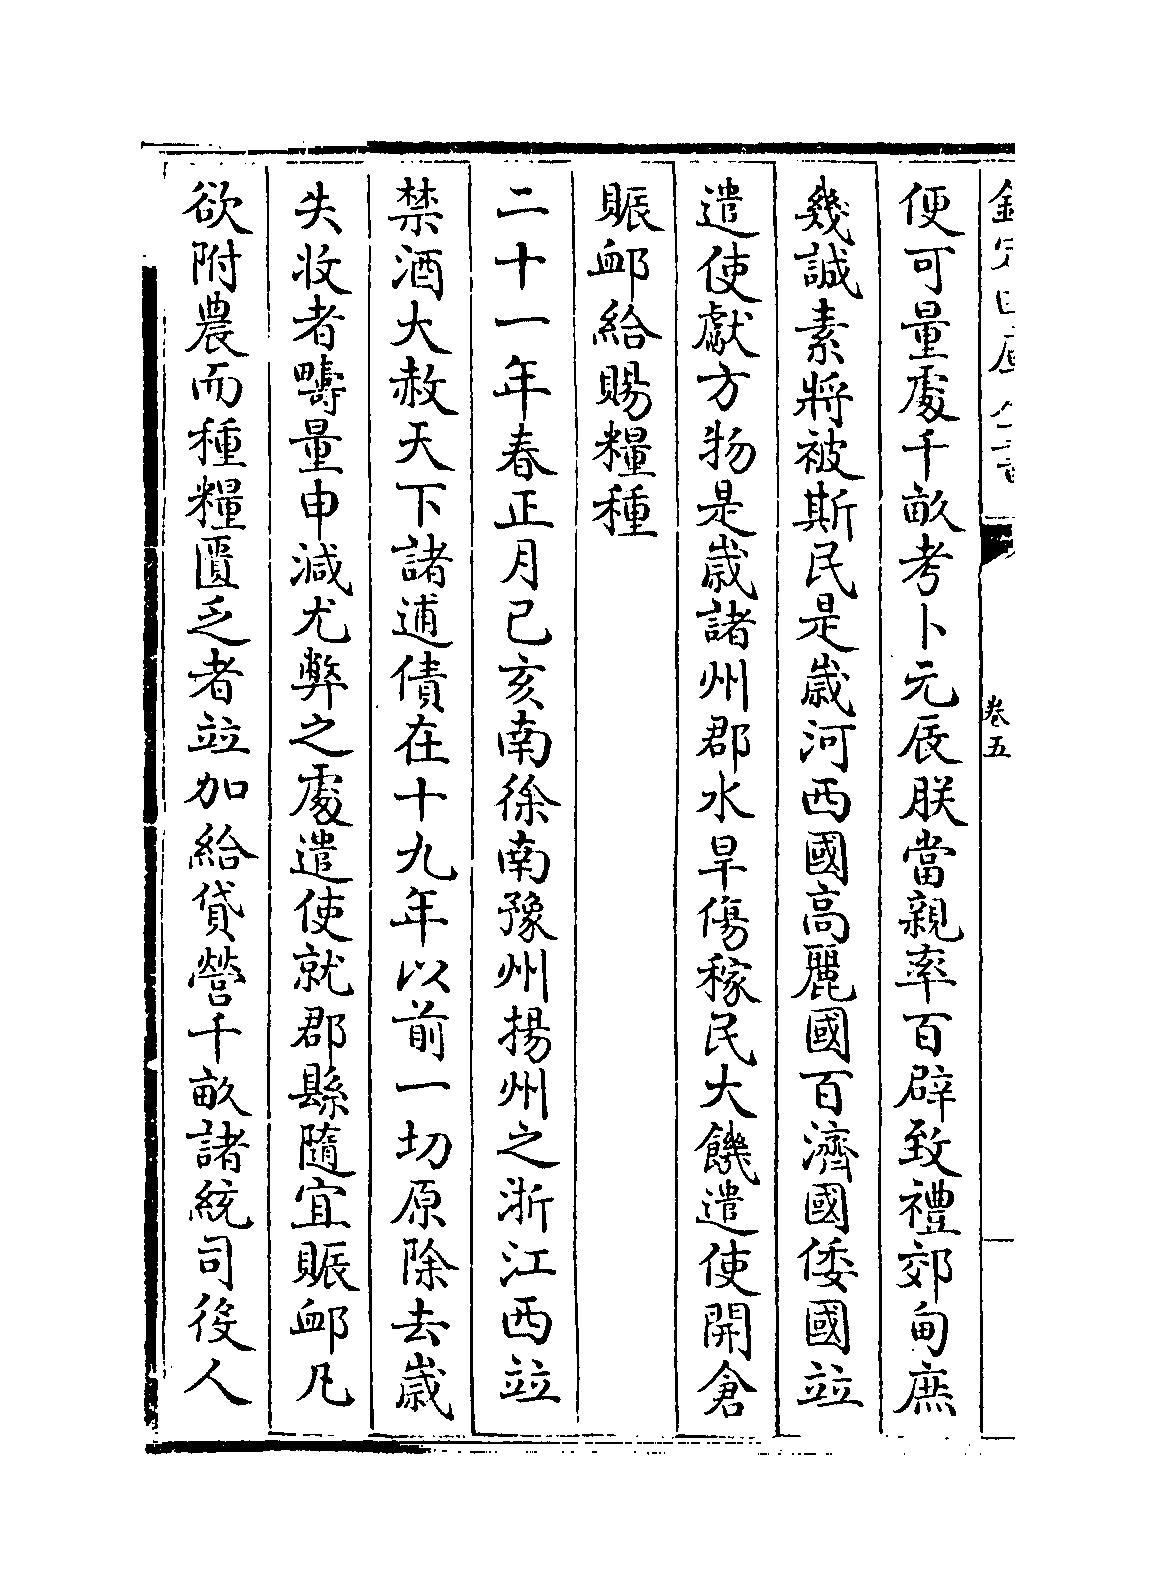 欽定四庫全書
卷五
便可量處千畝考卜元辰朕當親率百辟致禮郊甸庶
幾誠素將被斯民是歲河西國高麗國百濟國倭國竝
遣使獻方物是歲諸州郡水旱傷稼民大饑遣使開倉
賑卹給賜糧種
二十一年春正月己亥南徐南豫州揚州之浙江西竝
禁酒大赦天下諸逋債在十九年以前一切原除去歲
失收者疇量申減尤弊之處遣使就郡縣隨宜賑卹凡
欲附農而種糧匱乏者竝加給貸營千畝諸統司役人